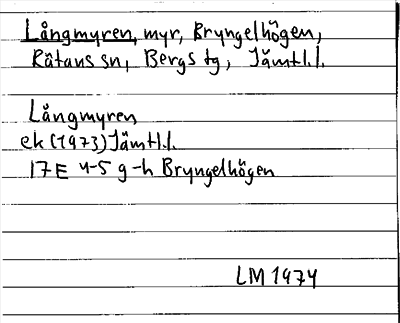 Långmyren, myr, Bryngelhögen,
Rätans sn, Bergs tg, Jämtl.l.
Långmyren
ek (1973) Jämtl.l.
17E 4-5 g-h Bryngelhögen
LM 1974